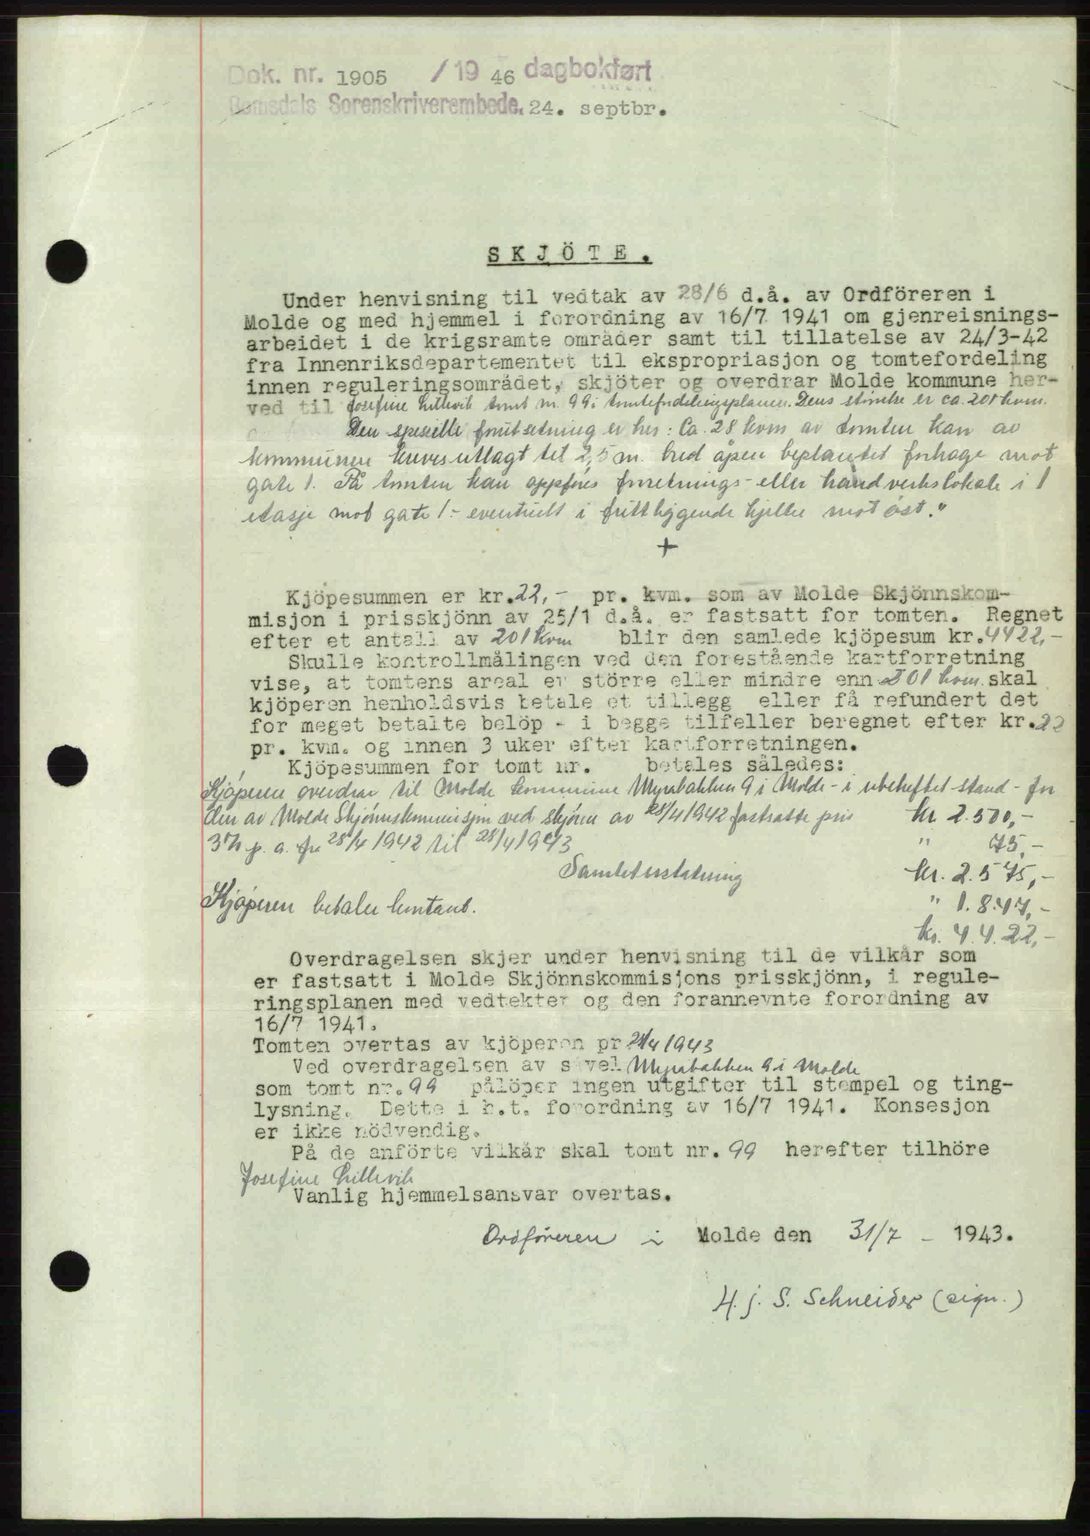 Dok. nr. 1905 /19 46 dagbokført
Romsdals Sorenskriverembede. 24. septbr.
SKJÖTE.
Under henvisning til vedtak av 28/6 d.å. av Ordföreren i
Molde og med hjemmel i forordning av 16/7 1941 om gjenreisnings-
arbeidet i de krigsramte områder samt til tillatelse av 24/3-42
fra Innenriksdepartementet til ekspropriasjon og tomtefordeling
innen reguleringsområdet, skjöter og overdrar Molde kommune her-
ved til Josefine Lillevik tomt nr. 99 i tomtefordelingsplanen. Dens størrelse er ca. 201 kvm.
Den spesielle forutsetning er her: Ca. 28 kvm av tomten kan av
kommunen kreves utlagt til 2,5 m. bred åpen beplantet forhage mot
gate 1. På tomten kan oppføres forretnings- eller håndverkslokale i 1
etasje mot gate 1 - eventuelt i frittliggende kjeller mot øst."
+
Kjöpesummen er kr. 22,- pr. kvm. som av Molde Skjönnskom-
misjon i prisskjönn av 25/1 d.å. er fastsatt for tomten. Regnet
efter et antall av 201 kvm blir den samlede kjöpesum kr. 4422,-
Skulle kontrollmålingen ved den forestående kartforretning
vise, at tomtens areal er större eller mindre enn 201 kvm. skal
kjöperen henholdsvis betale et tillegg eller få refundert det
for meget betalte belöp - i begge tilfeller beregnet efter kr. 22
pr. kvm. og innen 3 uker efter kartforretningen.
Kjöpesummen for tomt nr. betales således:
Kjøperen overdrar til Molde kommune Myrabakken 9 i Molde - i ubeheftet stand - for
den av Molde Skjønnskommisjon ved skjønn av 28/4 1942 fastsatte pris kr. 2.500,-
3% p.a. fra 28/4 1942 til 28/4 1943 " 75,-
Samlet erstatning kr. 2.575,-
Kjøperen betaler kontant. " 1.847,-
kr. 4.422,-
Overdragelsen skjer under henvisning til de vilkår som
er fastsatt i Molde Skjönnskommisjons prisskjönn, i regule-
ringsplanen med vedtekter og den forannevnte forordning av
16/7 1941.
Tomten overtas av kjöperen pr. 28/4 1943
Ved overdragelsen av såvel Myrabakken 9 i Molde
som tomt nr. 99 pålöper ingen utgifter til stempel og ting-
lysning. Dette i h.t. forordning av 16/7 1941. Konsesjon
er ikke nödvendig.
På de anförte vilkår skal tomt nr. 99 herefter tilhöre
Josefine Lillevik
Vanlig hjemmelsansvar overtas.
Ordføreren i Molde den 31/7 - 1943.
H. j. S. Schneider (sign.)